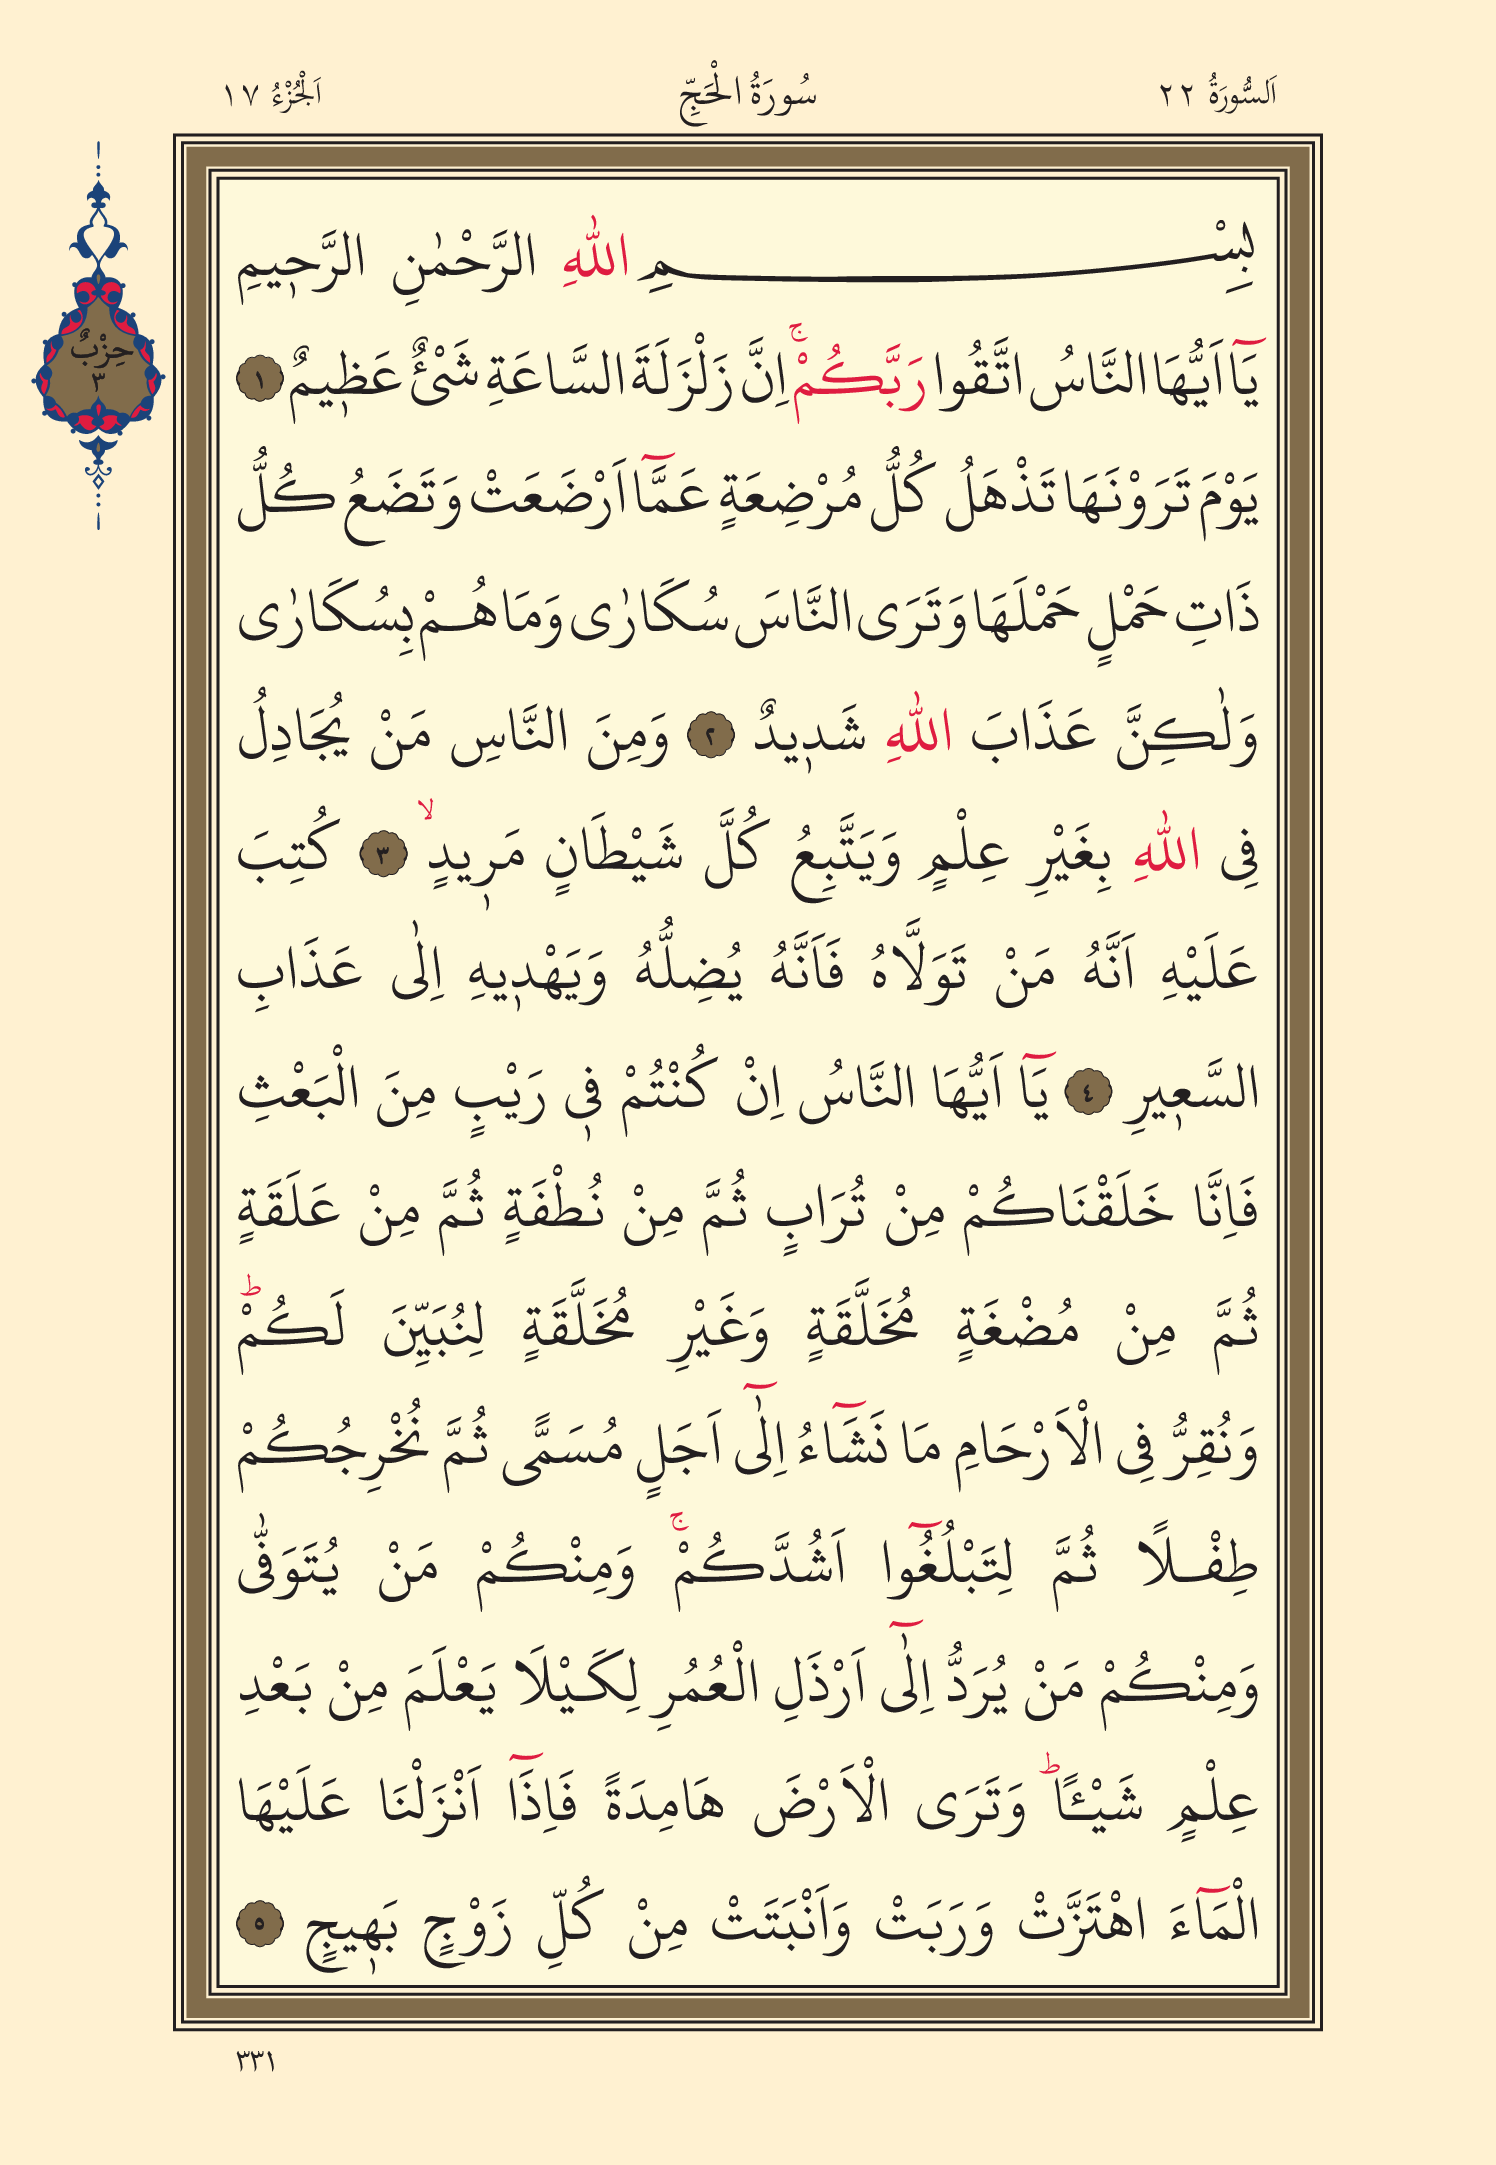 اَلسُّورَةُ ٢٢ سُورَةُ الْحَجِّ اَلْجُزْءُ ١٧
حِزْبٌ
٣
بِسْمِ اللّٰهِ الرَّحْمٰنِ الرَّح۪يمِ
يَٓا اَيُّهَا النَّاسُ اتَّقُوا رَبَّكُمْۚ اِنَّ زَلْزَلَةَ السَّاعَةِ شَيْءٌ عَظ۪يمٌ ١
يَوْمَ تَرَوْنَهَا تَذْهَلُ كُلُّ مُرْضِعَةٍ عَمَّٓا اَرْضَعَتْ وَتَضَعُ كُلُّ
ذَاتِ حَمْلٍ حَمْلَهَا وَتَرَى النَّاسَ سُكَارٰى وَمَا هُمْ بِسُكَارٰى
وَلٰكِنَّ عَذَابَ اللّٰهِ شَد۪يدٌ ٢ وَمِنَ النَّاسِ مَنْ يُجَادِلُ
فِي اللّٰهِ بِغَيْرِ عِلْمٍ وَيَتَّبِعُ كُلَّ شَيْطَانٍ مَر۪يدٍۙ ٣ كُتِبَ
عَلَيْهِ اَنَّهُ مَنْ تَوَلَّاهُ فَاَنَّهُ يُضِلُّهُ وَيَهْد۪يهِ اِلٰى عَذَابِ
السَّع۪يرِ ٤ يَٓا اَيُّهَا النَّاسُ اِنْ كُنْتُمْ ف۪ي رَيْبٍ مِنَ الْبَعْثِ
فَاِنَّا خَلَقْنَاكُمْ مِنْ تُرَابٍ ثُمَّ مِنْ نُطْفَةٍ ثُمَّ مِنْ عَلَقَةٍ
ثُمَّ مِنْ مُضْغَةٍ مُخَلَّقَةٍ وَغَيْرِ مُخَلَّقَةٍ لِنُبَيِّنَ لَكُمْۜ
وَنُقِرُّ فِي الْاَرْحَامِ مَا نَشَٓاءُ اِلٰٓى اَجَلٍ مُسَمًّى ثُمَّ نُخْرِجُكُمْ
طِفْلًا ثُمَّ لِتَبْلُغُٓوا اَشُدَّكُمْۚ وَمِنْكُمْ مَنْ يُتَوَفّٰى
وَمِنْكُمْ مَنْ يُرَدُّ اِلٰٓى اَرْذَلِ الْعُمُرِ لِكَيْلَا يَعْلَمَ مِنْ بَعْدِ
عِلْمٍ شَيْـًٔاۜ وَتَرَى الْاَرْضَ هَامِدَةً فَاِذَٓا اَنْزَلْنَا عَلَيْهَا
الْمَٓاءَ اهْتَزَّتْ وَرَبَتْ وَاَنْبَتَتْ مِنْ كُلِّ زَوْجٍ بَه۪يجٍ ٥
٣٣١